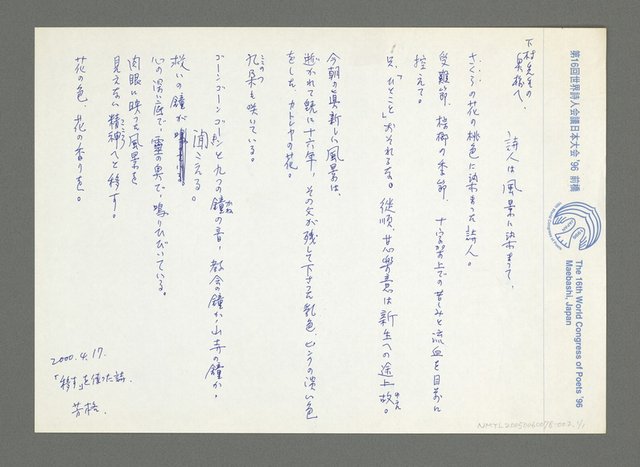 第16回世界詩人会議日本大会 '96 前橋
The 16th World Congress of Poets '96
Maebashi, Japan
下村先生の
奥様へ、
詩人は風景に染まって、
さくらの花の桃色に染まった詩人。
受難節、棕櫚の季節、十字架上での苦しみと流血を目前に
控えて。
只、「ひとこと」おそれるな。従順、甘い善意は新生への途上故。
ゆえ
今朝の真新しい風景は、
逝かれて既に十六年、その父が残して下さった乳色、ピンクの濃い色
をした カトレヤの花。
九朶も咲いている。
ここのつ
ゴーンゴーンゴーンと九つの鐘の音、教会の鐘か、山寺の鐘か、
かね
聞こえる。
救いの鐘が
心の深い底で、霊の奥で、鳴りひびいている。
肉眼に映った風景を
見えない精神へと移す。
こころ
花の色、花の香りを。
2000.4.17.
「移す」を使った詩、
芳格.
NMYL20050060078-002.1/1